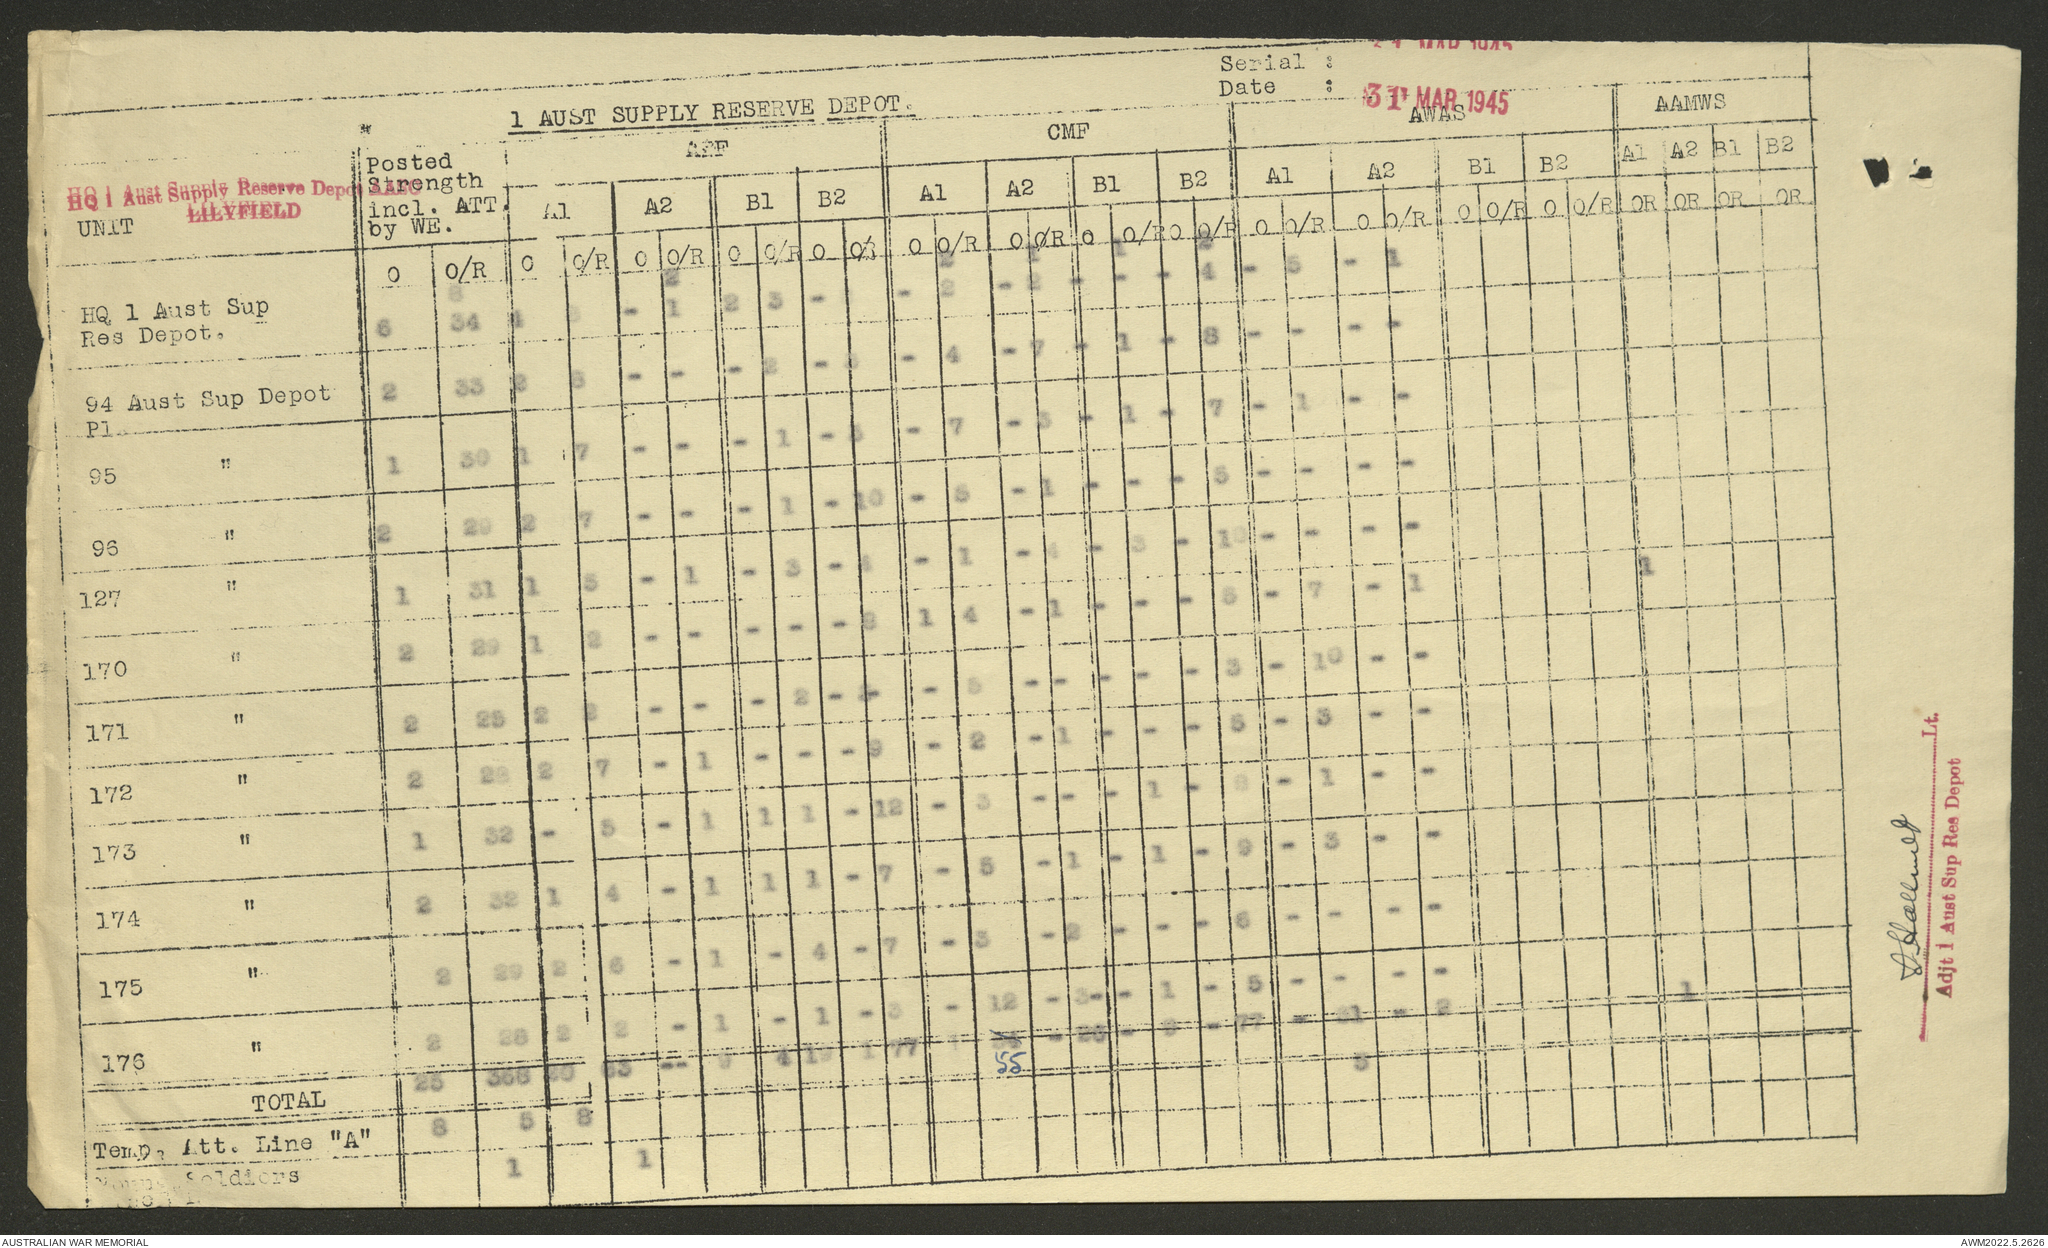 Serial :
Date : 31 MAR 1945
1 AUST SUPPLY RESERVE DEPOT.
AIF CMF AWAS AAMWS
HQ 1 Aust Supply Reserve Depot AASC
LILYFIELD
UNIT
Posted
Strength
incl. ATT.
by WE.
A1 A2 B1 B2 A1 A2 B1 B2 A1 A2 B1 B2 A1 A2 B1 B2
O O/R O O/R O O/R O O/R O O/R O O/R O O/R O O/R O O/R O O/R O O/R O O/R O O/R OR OR OR OR
HQ 1 Aust Sup
Res Depot. 6 34 4 - 1 2 3 - - 2 - 2 - - - 4 - 5 - 1
94 Aust Sup Depot
Pl. 2 33 2 6 - - - 2 - 3 - 4 - 7 - 1 - 8 - - - -
95 " 1 30 1 7 - - - 1 - 3 - 7 - 3 - 1 - 7 - 1 - -
96 " 2 29 2 7 - - - 1 - 10 - 5 - 1 - - - 5 - - - -
127 " 1 31 1 5 - 1 - 3 - 4 - 1 - 4 - 3 - 10 - - - -
170 " 2 29 1 2 - - - - - 8 1 4 - 1 - - - 6 - 7 - 1 1
171 " 2 25 2 2 - - - 2 - 3 - 5 - - - - - 3 - 10 - -
172 " 2 28 2 7 - 1 - - - 9 - 2 - 1 - - - 5 - 3 - -
173 " 1 32 - 5 - 1 1 1 - 12 - 3 - - - 1 - 8 - 1 - -
174 " 2 32 1 4 - 1 1 1 - 7 - 5 - 1 - 1 - 9 - 3 - -
175 " 2 29 2 6 - 1 - 4 - 7 - 3 - 2 - - - 6 - - - -
176 " 2 28 2 2 - 1 - 1 - 3 - 12 - 3 - 1 - 5 - - - -
TOTAL 25 368 20 63 - 9 4 19 1 77 1 55 - 26 - 9 - 77 - 31 - 2 1
Temp. Att. Line "A" 8 5 8 3
Soldiers 1 1
Lt.
Adjt 1 Aust Sup Res Depot
AUSTRALIAN WAR MEMORIAL
AWM2022.5.2626